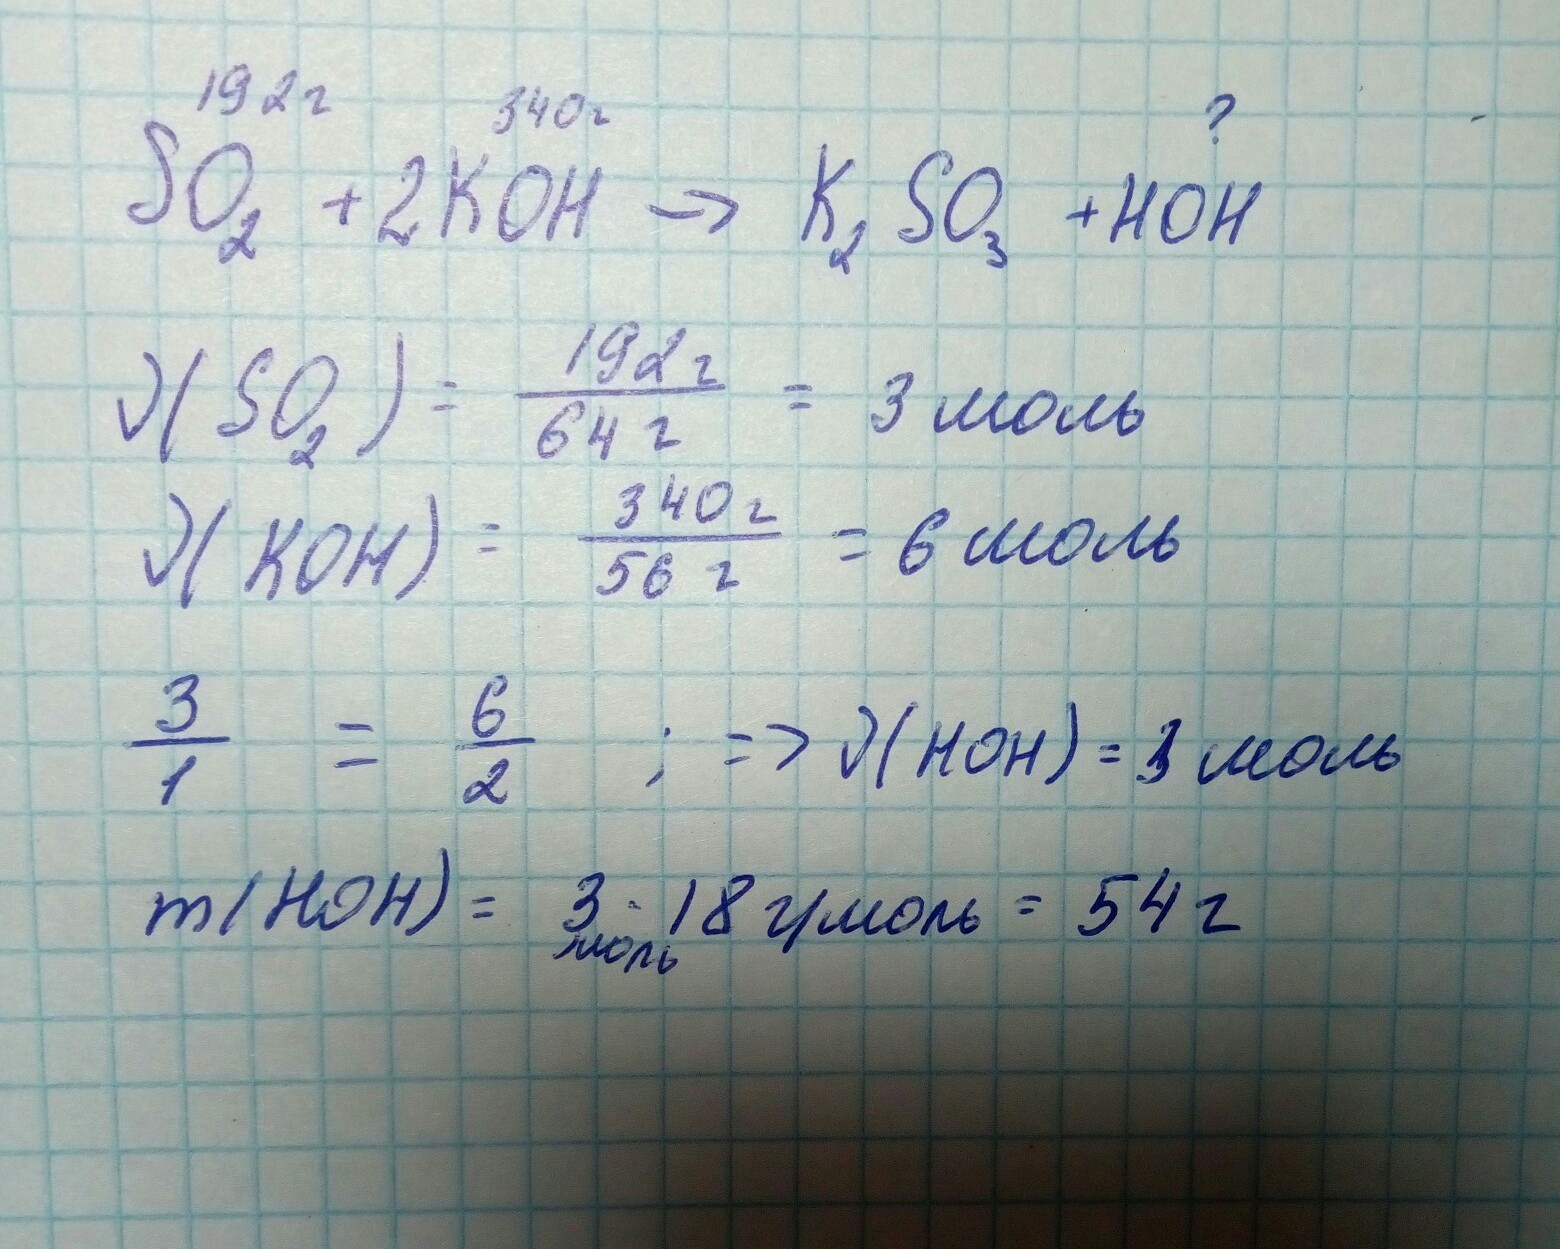 192г 340г ?
SO₂ + 2KOH → K₂SO₃ + HOH
ν(SO₂) = 192г/64г = 3 моль
ν(KOH) = 340г/56г = 6 моль
3/1 = 6/2 ; => ν(HOH) = 3 моль
m(HOH) = 3 моль · 18 г/моль = 54 г